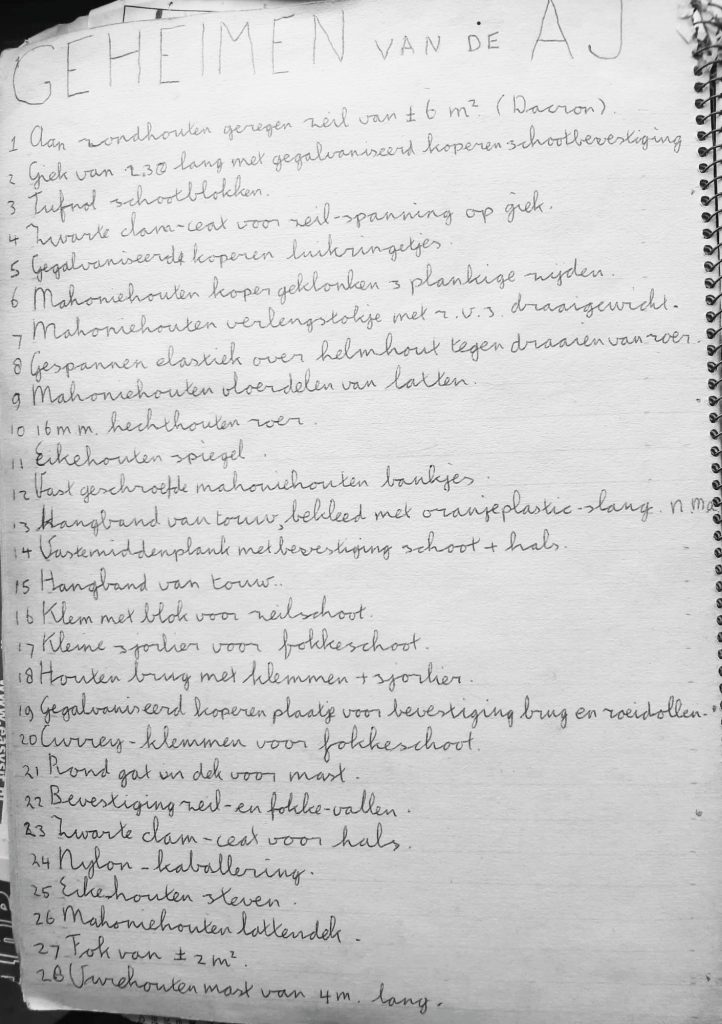 GEHEIMEN VAN DE AJ
1 Aan rondhouten geregen zeil van ± 6 m² (Dacron).
2 Giek van 2.30 lang met gegalvaniseerd koperen schootbevestiging
3 Tufnol schootblokken.
4 Zwarte clam-ceat voor zeil-spanning op giek.
5 Gegalvaniseerde koperen luikringetjes.
6 Mahoniehouten koper geklonken 3 plankige zijden.
7 Mahoniehouten verlengstokje met r.v.s. draaigewicht.
8 Gespannen elastiek over helmhout tegen draaien van roer.
9 Mahoniehouten vloerdelen van latten.
10 16 m m. hechthouten roer.
11 Eikehouten spiegel.
12 Vast geschroefde mahoniehouten bankjes.
13 Hangband van touw, bekleed met oranjeplastic-slang. n.
14 Vastemiddenplank met bevestiging schoot + hals.
15 Hangband van touw..
16 Klem met blok voor zeilschoot.
17 Kleine sjorlier voor fokkeschoot.
18 Houten brug met klemmen + sjorlier.
19 Gegalvaniseerd koperen plaatje voor bevestiging brug en roeidollen.
20 Currey-klemmen voor fokkeschoot.
21 Rond gat in dek voor mast.
22 Bevestiging zeil-en fokke-vallen.
23 Zwarte clam-ceat voor hals.
24 Nylon-kaballering.
25 Eikehouten steven.
26 Mahoniehouten lattendek.
27 Fok van ± 2 m².
28 Vurehouten mast van 4 m. lang.